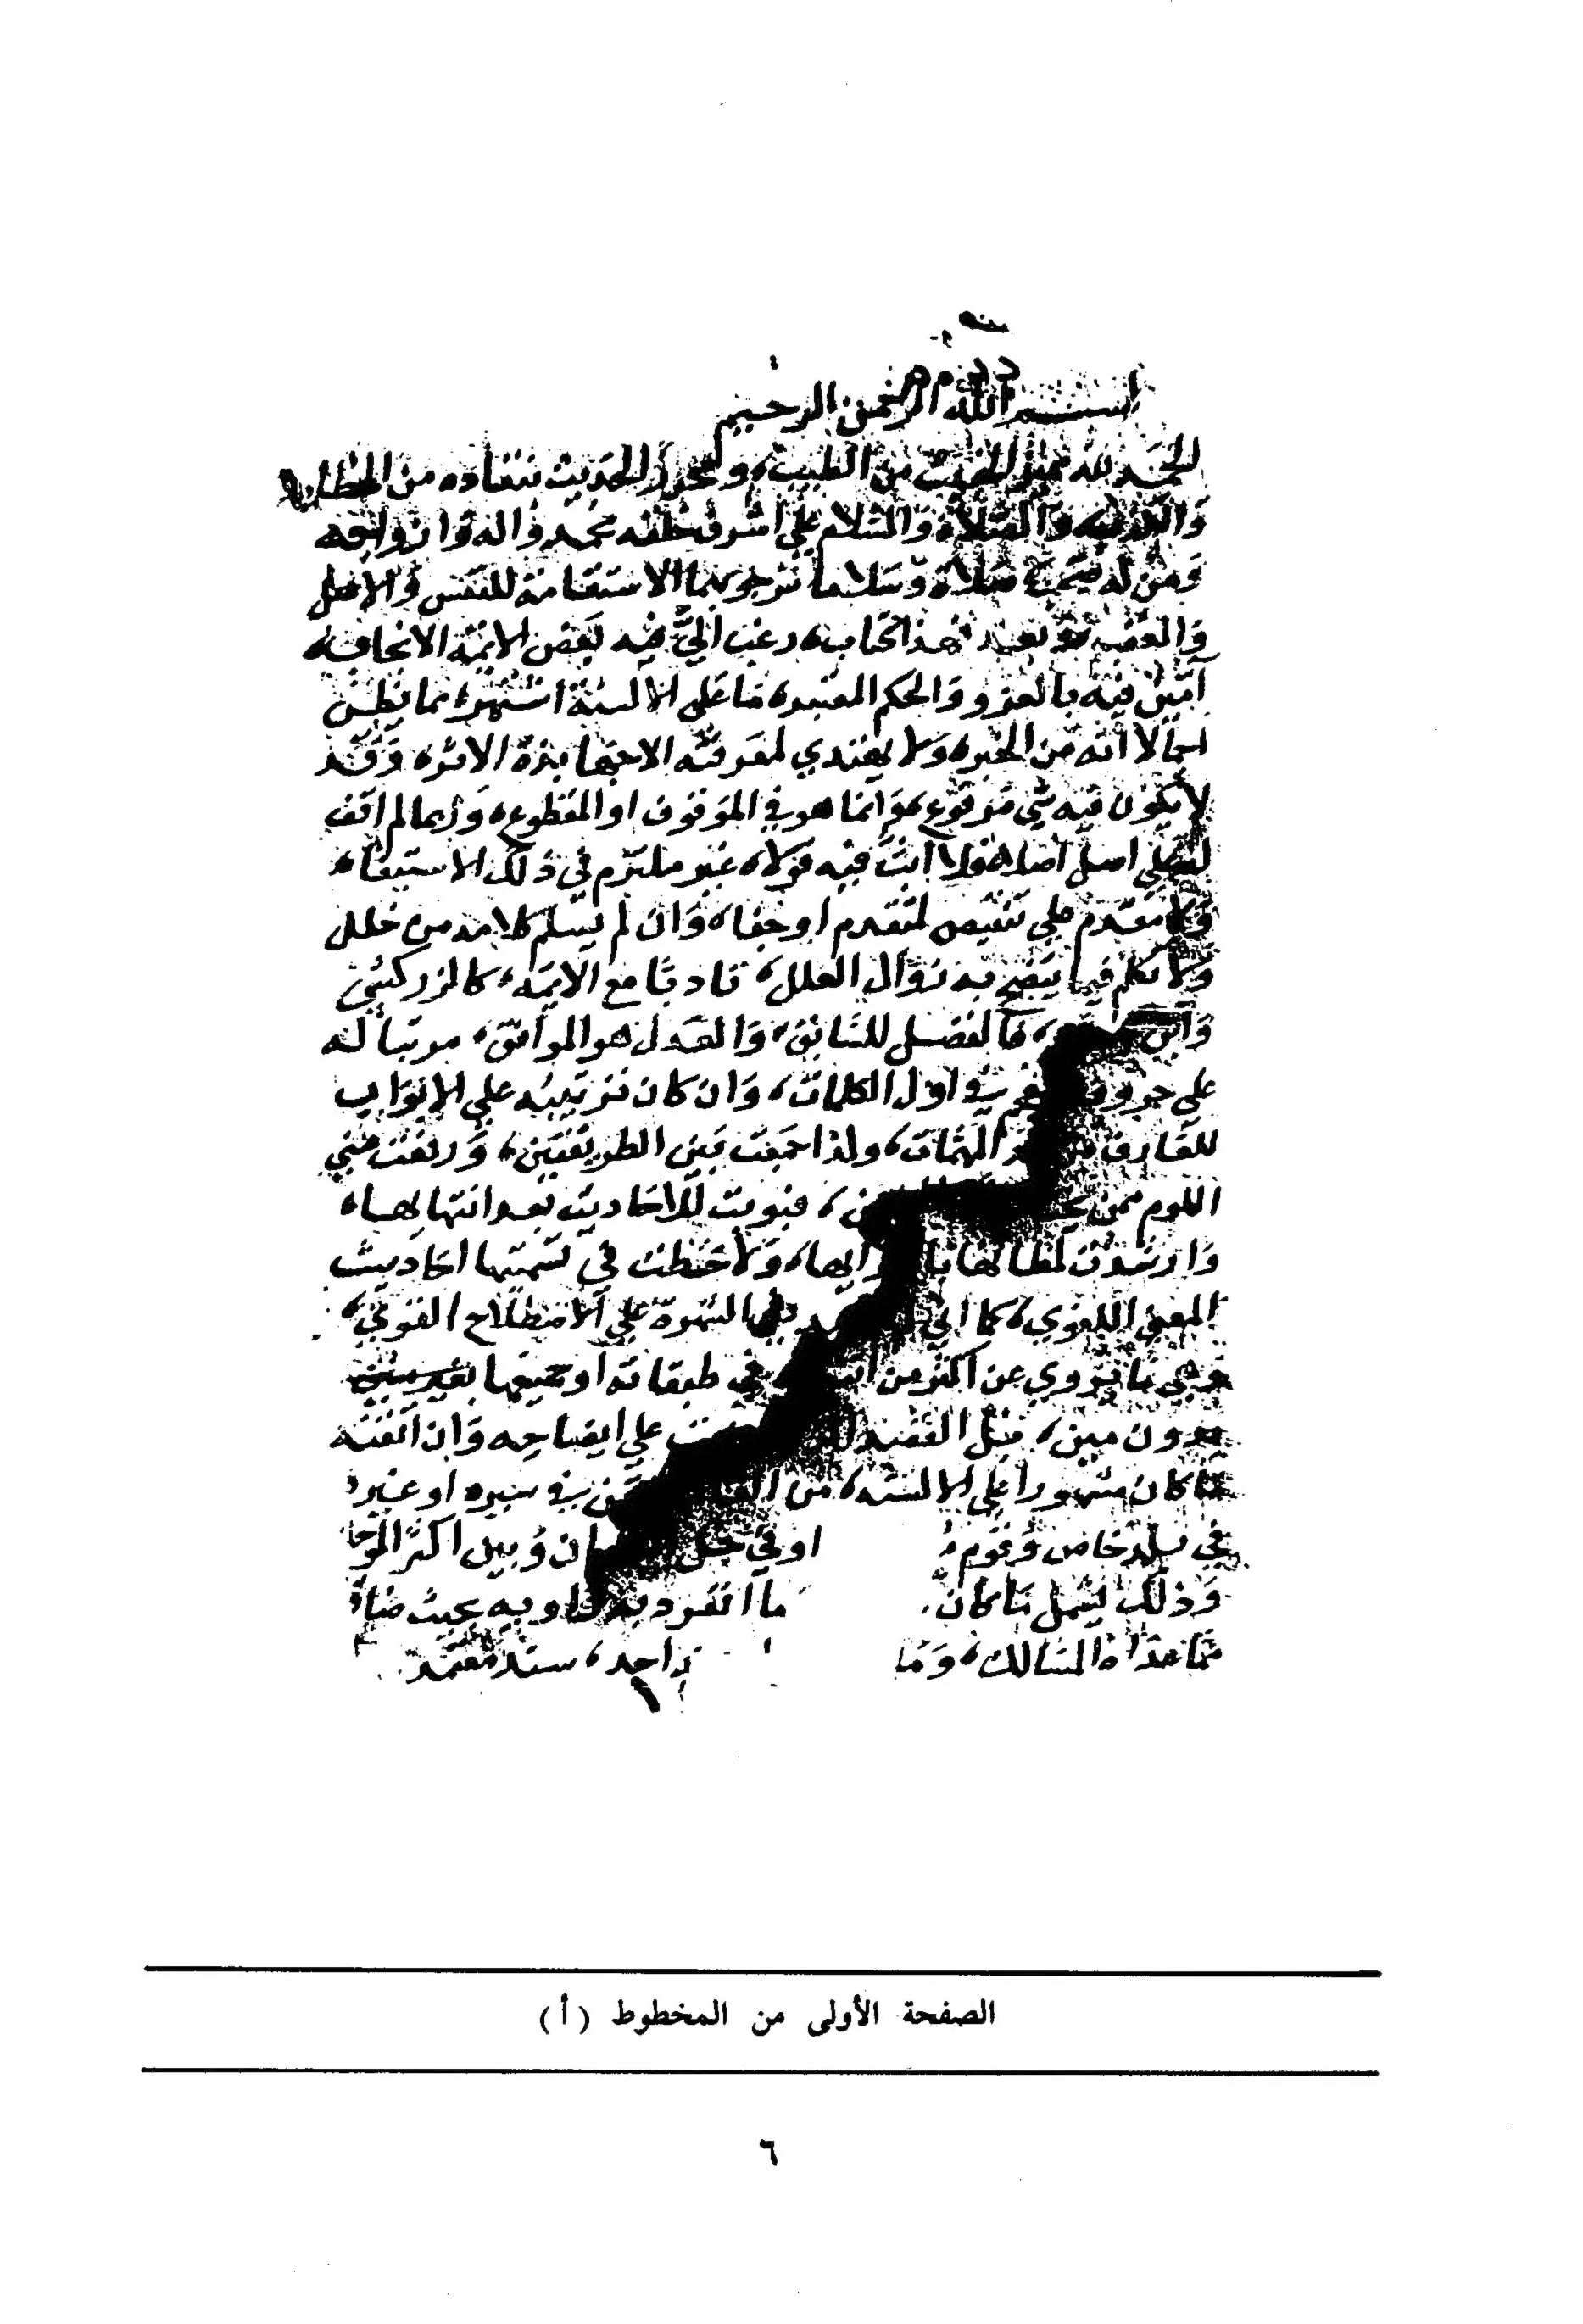 بسم الله الرحمن الرحيم
الحمد لله مميز الخبيث من الطيب، ومحرز الحديث بنقاده من الخطا
والكذب والصلاة والسلام على اشرف خلقه محمد واله وازواجه
ومن له صحب صلاة وسلاما نرجو بهما الاستقامة للنفس والاهل
والعقب وبعد فهذا كتاب، رغب الي فيه بعض الائمة الانجاب،
ابين فيه بالعزو والحكم المعتبر، ما على الالسنة اشتهر، مما يظن
اجمالا انه من الخبر، ولا يهتدي لمعرفته الا جهابذة الاثر، وقد
لا يكون فيه شي مرفوع، وانما هو في الموقوف او المقطوع، وربما لم اقف
له على اصل اصلا فلا ابت فيه قولا، غير ملتزم في ذلك الاستيفا،
ولا مقدم على تنقيص لمتقدم او جفا، وان لم يسلم كلامه من خلل
ولا تكلم فيما يتضح به زوال العلل، تادبا مع الايمة، كالزركشي
وابن ، فالفضل للسابق، والعدل هو الموافق، مرتبا له
على حروف المعجم في اول الكلمات، وان كان ترتيبه على الابواب
للعارف من المهمات، ولذا جمعت بين الطريقتين، ورفعت عني
اللوم ممن ، فبوبت للاحاديث بعد انتهايها،
وارشدت لمظانها ، ولاحظت في تسميتها احاديث
المعنى اللغوي، كما اني لم اقصد بالشهرة على الاصطلاح القوي،
وهي ما يروى عن اكثر من اثنين في طبقاته او جميعها
بدون مين، بل القصد الذي على ايضاحه وان اتقنه
ما كان مشهورا على الالسنة، من في سيره او غيره
في بلد خاص وقوم او في جل وبين اكثر
وذلك يشمل ما كان ما انفرد به راويه بحيث
عداه المسالك، وما واحد، سند معتمد
الصفحة الأولى من المخطوط (أ)
٦